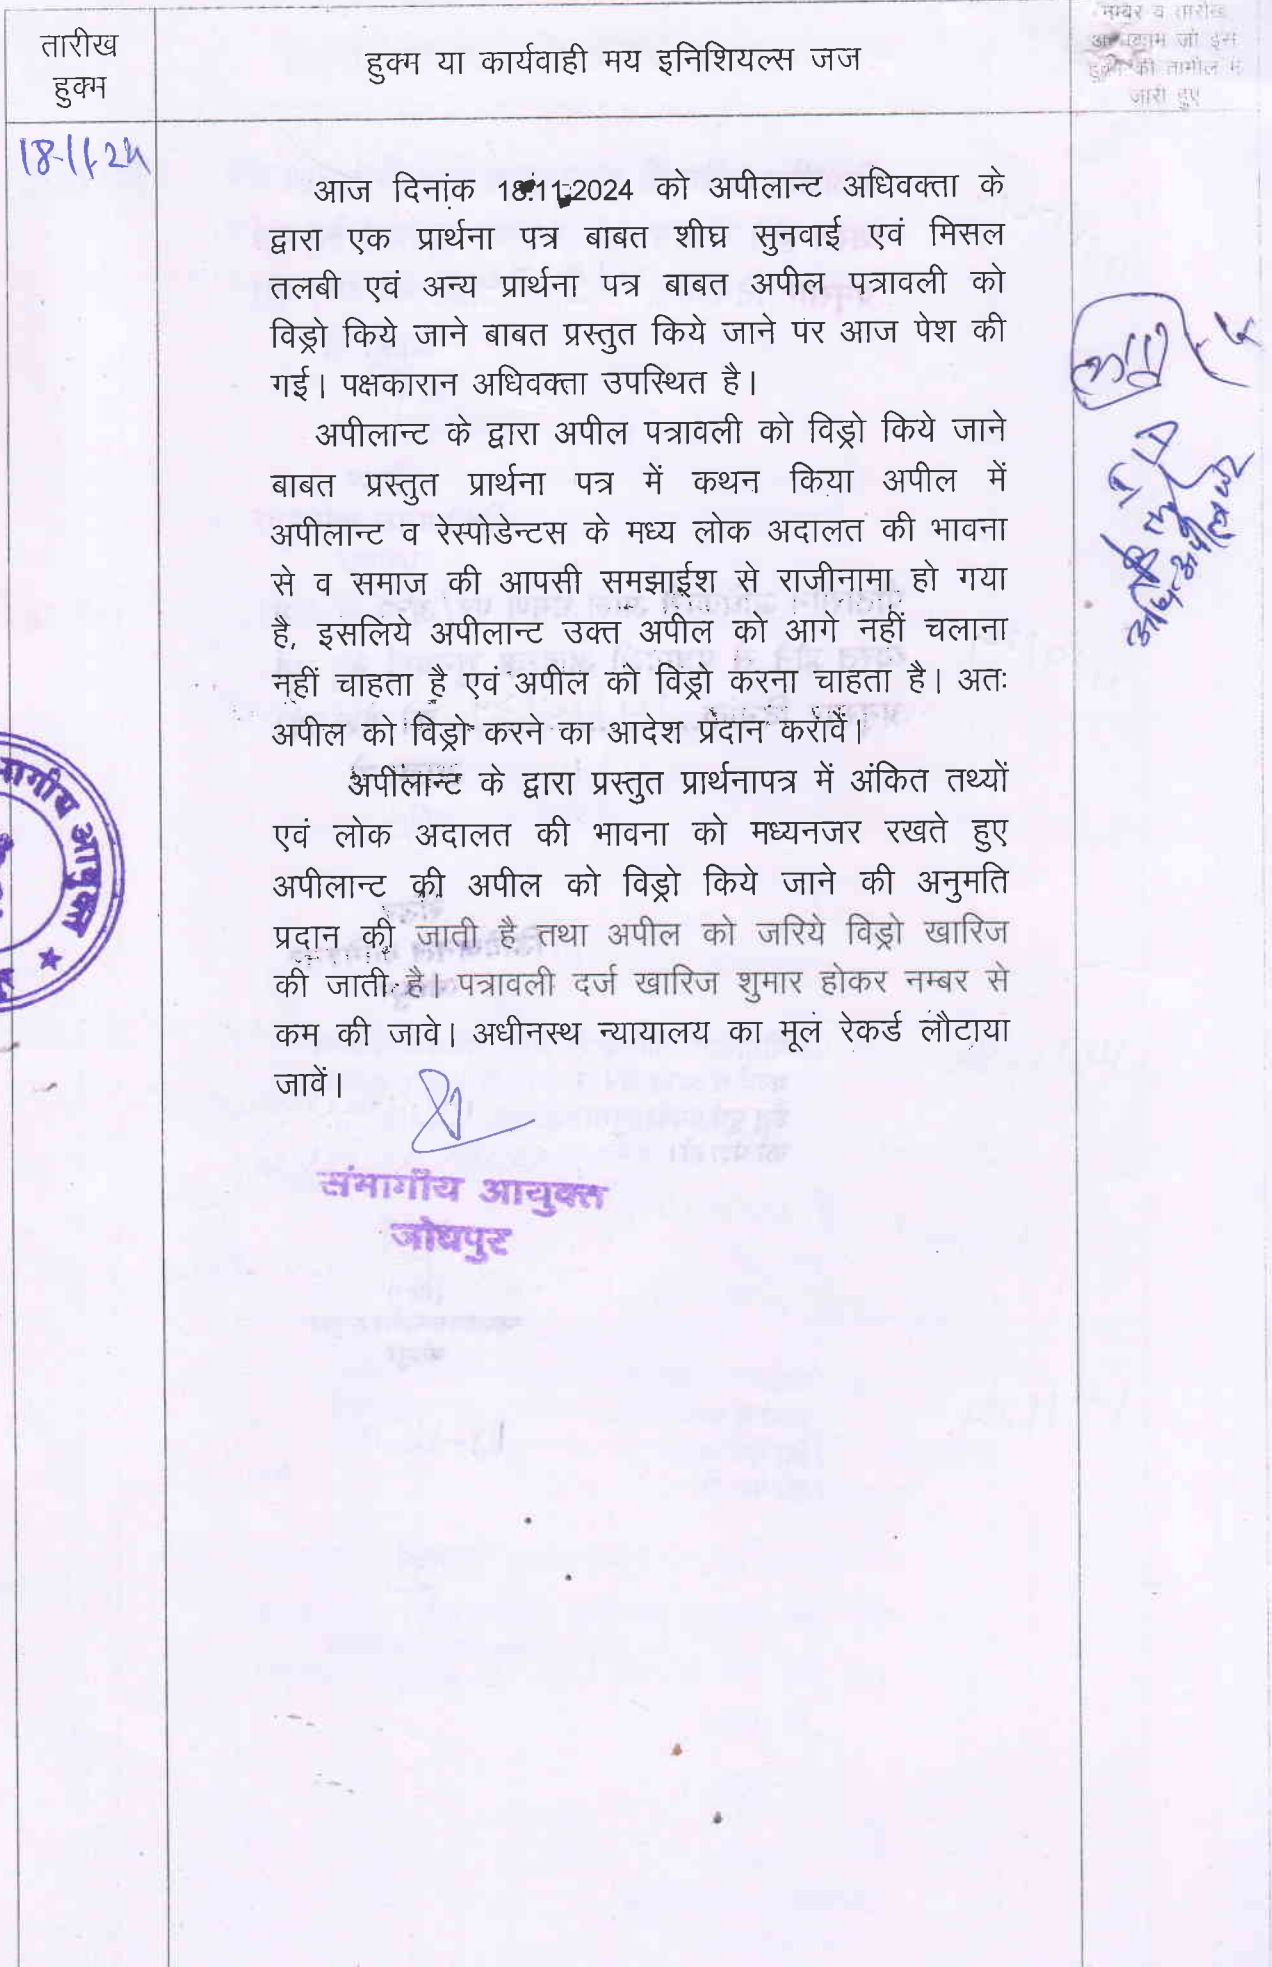 तारीख
हुक्म
हुक्म या कार्यवाही मय इनिशियल्स जज
नम्बर व तारीख
जो इस
की तामील में
जारी हुए
18-11-24
आज दिनांक 18.11.2024 को अपीलान्ट अधिवक्ता के
द्वारा एक प्रार्थना पत्र बाबत शीघ्र सुनवाई एवं मिसल
तलबी एवं अन्य प्रार्थना पत्र बाबत अपील पत्रावली को
विड्रो किये जाने बाबत प्रस्तुत किये जाने पर आज पेश की
गई। पक्षकारान अधिवक्ता उपस्थित है।
अपीलान्ट के द्वारा अपील पत्रावली को विड्रो किये जाने
बाबत प्रस्तुत प्रार्थना पत्र में कथन किया अपील में
अपीलान्ट व रेस्पोडेन्टस के मध्य लोक अदालत की भावना
से व समाज की आपसी समझाईश से राजीनामा हो गया
है, इसलिये अपीलान्ट उक्त अपील को आगे नहीं चलाना
नहीं चाहता है एवं अपील को विड्रो करना चाहता है। अतः
अपील को विड्रो करने का आदेश प्रदान करावें।
अपीलान्ट के द्वारा प्रस्तुत प्रार्थनापत्र में अंकित तथ्यों
एवं लोक अदालत की भावना को मध्यनजर रखते हुए
अपीलान्ट की अपील को विड्रो किये जाने की अनुमति
प्रदान की जाती है तथा अपील को जरिये विड्रो खारिज
की जाती है। पत्रावली दर्ज खारिज शुमार होकर नम्बर से
कम की जावे। अधीनस्थ न्यायालय का मूल रेकर्ड लौटाया
जावें।
संभागीय आयुक्त
जोधपुर
आयुक्त